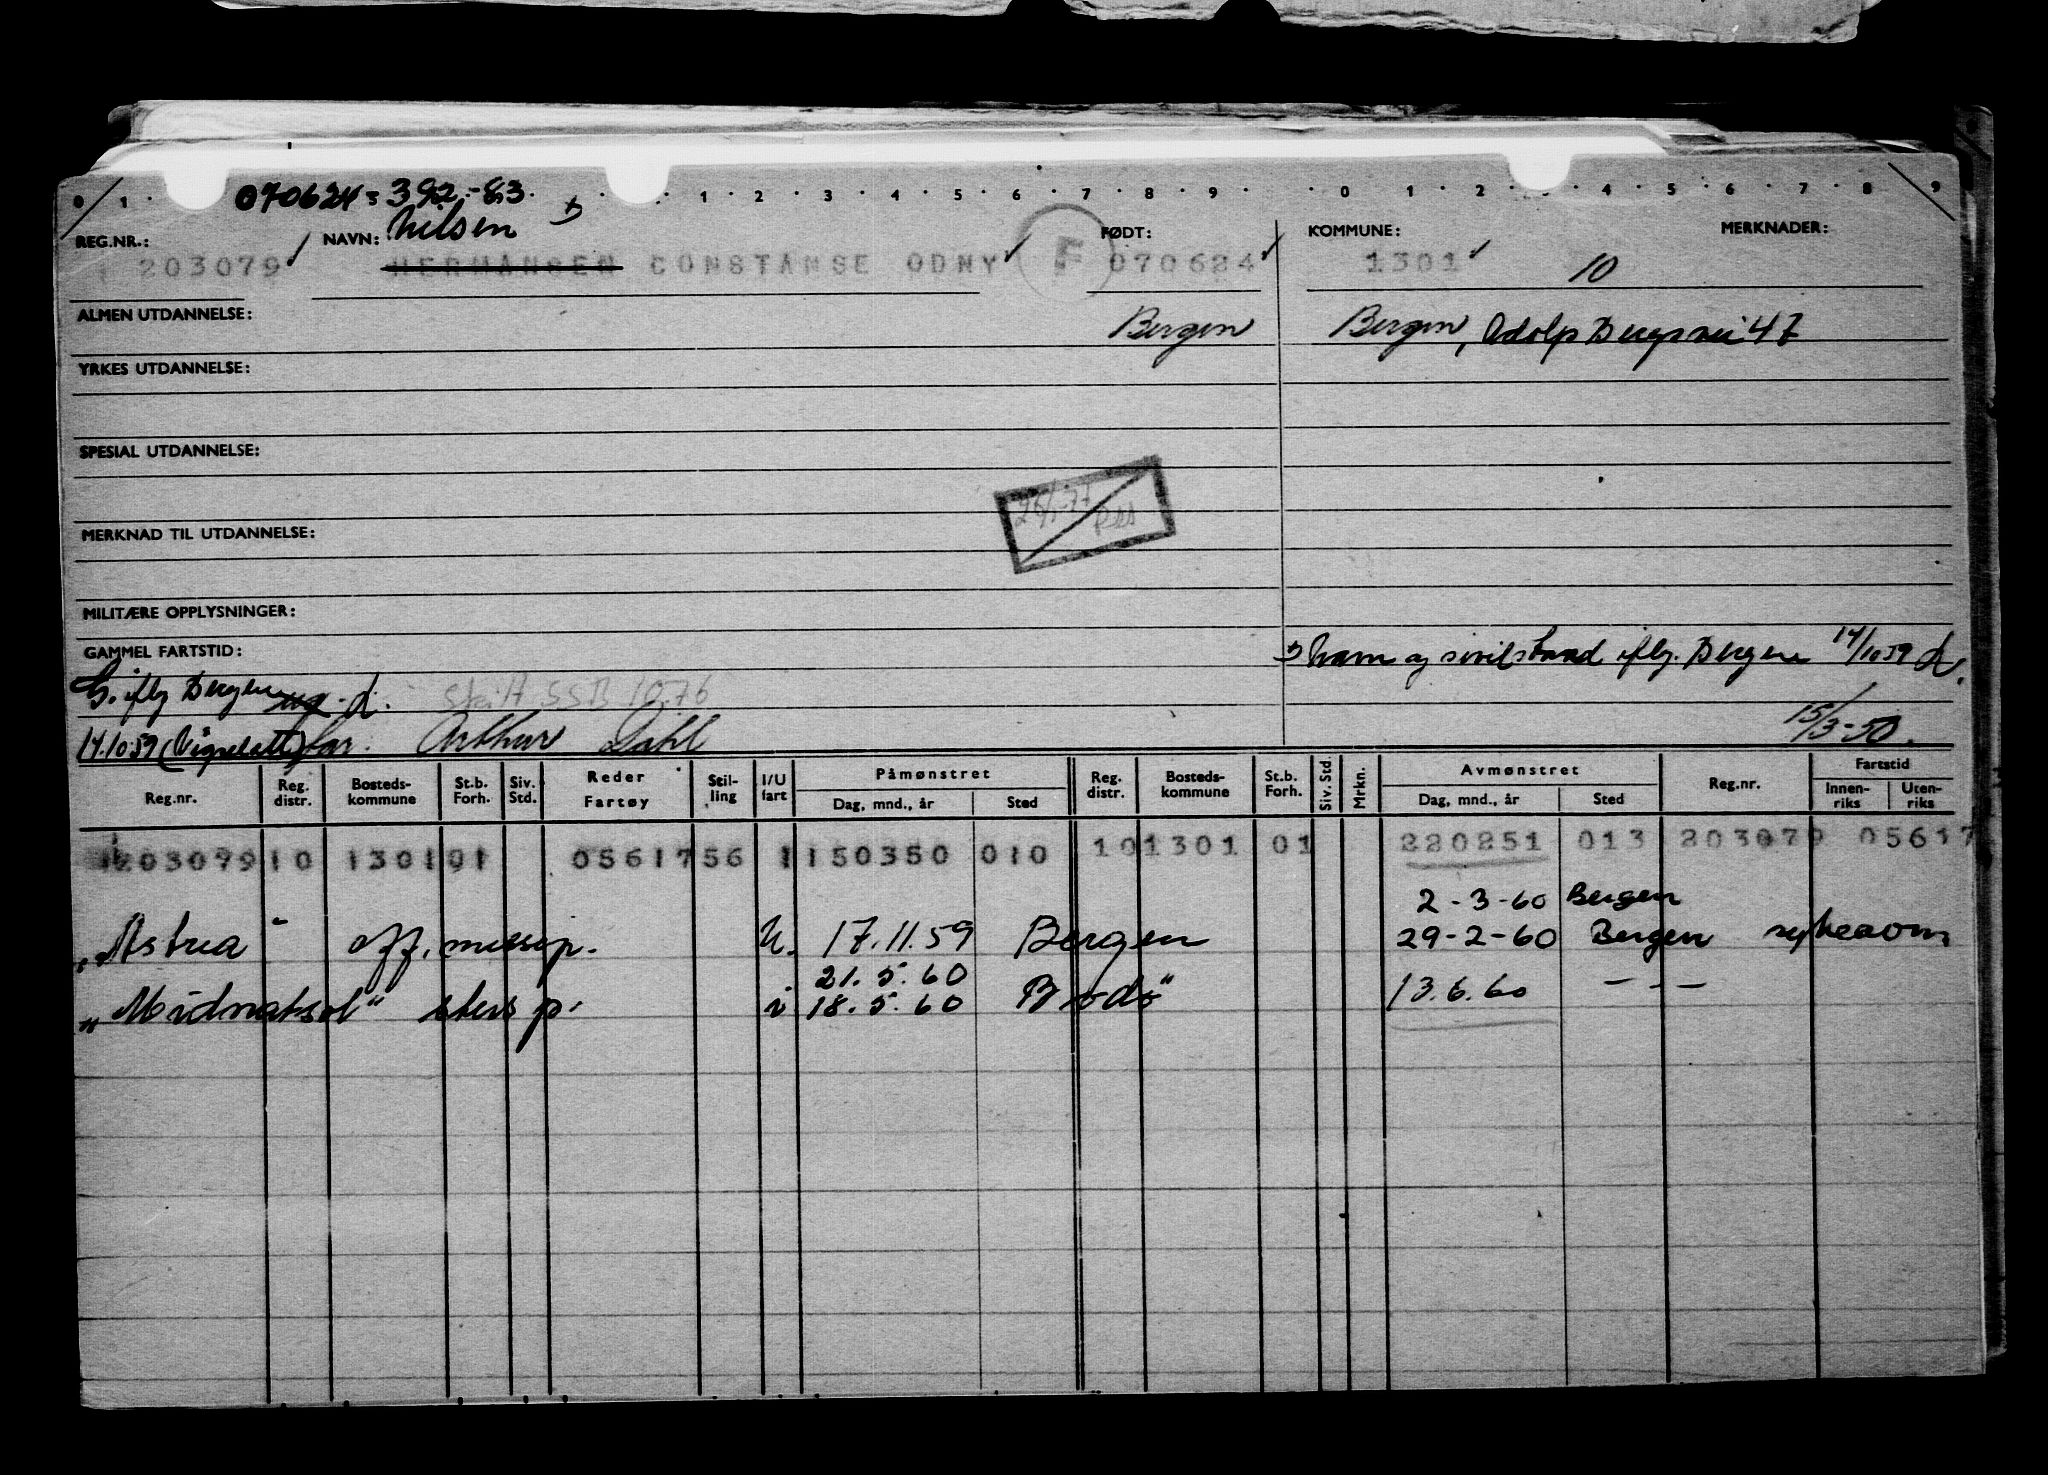 070624 = 392.-83.
0 1 1 2 3 4 5 6 7 8 9 0 1 2 4 5 6 7 8 9
Nilsen
REG.NR.: NAVN: FØDT: KOMMUNE: MERKNADER:
203079 HERMANSEN CONSTANSE ODNY F 070624 1301 10
ALMEN UTDANNELSE: Bergen Bergen, Adolp Bergsvei 47
YRKES UTDANNELSE:
SPESIAL UTDANNELSE:
MERKNAD TIL UTDANNELSE:
MILITÆRE OPPLYSNINGER:
GAMMEL FARTSTID:
Navn og sivilstand iflg. Bergen 14/10 59
G. iflg Bergen Skift SSB 10.76
14.10.59 (Vigselatt) far. Arthur Dahl 15/3-50.
Reg.nr. Reg. distr. Bosteds-kommune St.b. Forh. Siv. Std. Reder Fartøy Stil-ling I/U fart Påmønstret Dag, mnd., år Sted Reg. distr. Bosteds-kommune St.b. Forh. Siv. Std. Mrkn. Avmønstret Dag, mnd., år Sted Reg.nr. Fartstid Innen-riks Uten-riks
203079 10 1301 01 05617 56 1 150350 010 10 1301 01 220251 013 203079 05617
2-3-60 Bergen
"Astrea" off. messep. U. 17.11.59 Bergen 29-2-60 Bergen
21.5.60
"Midnatsol" stersp. i 18.5.60 Bodø 13.6.60 - " -